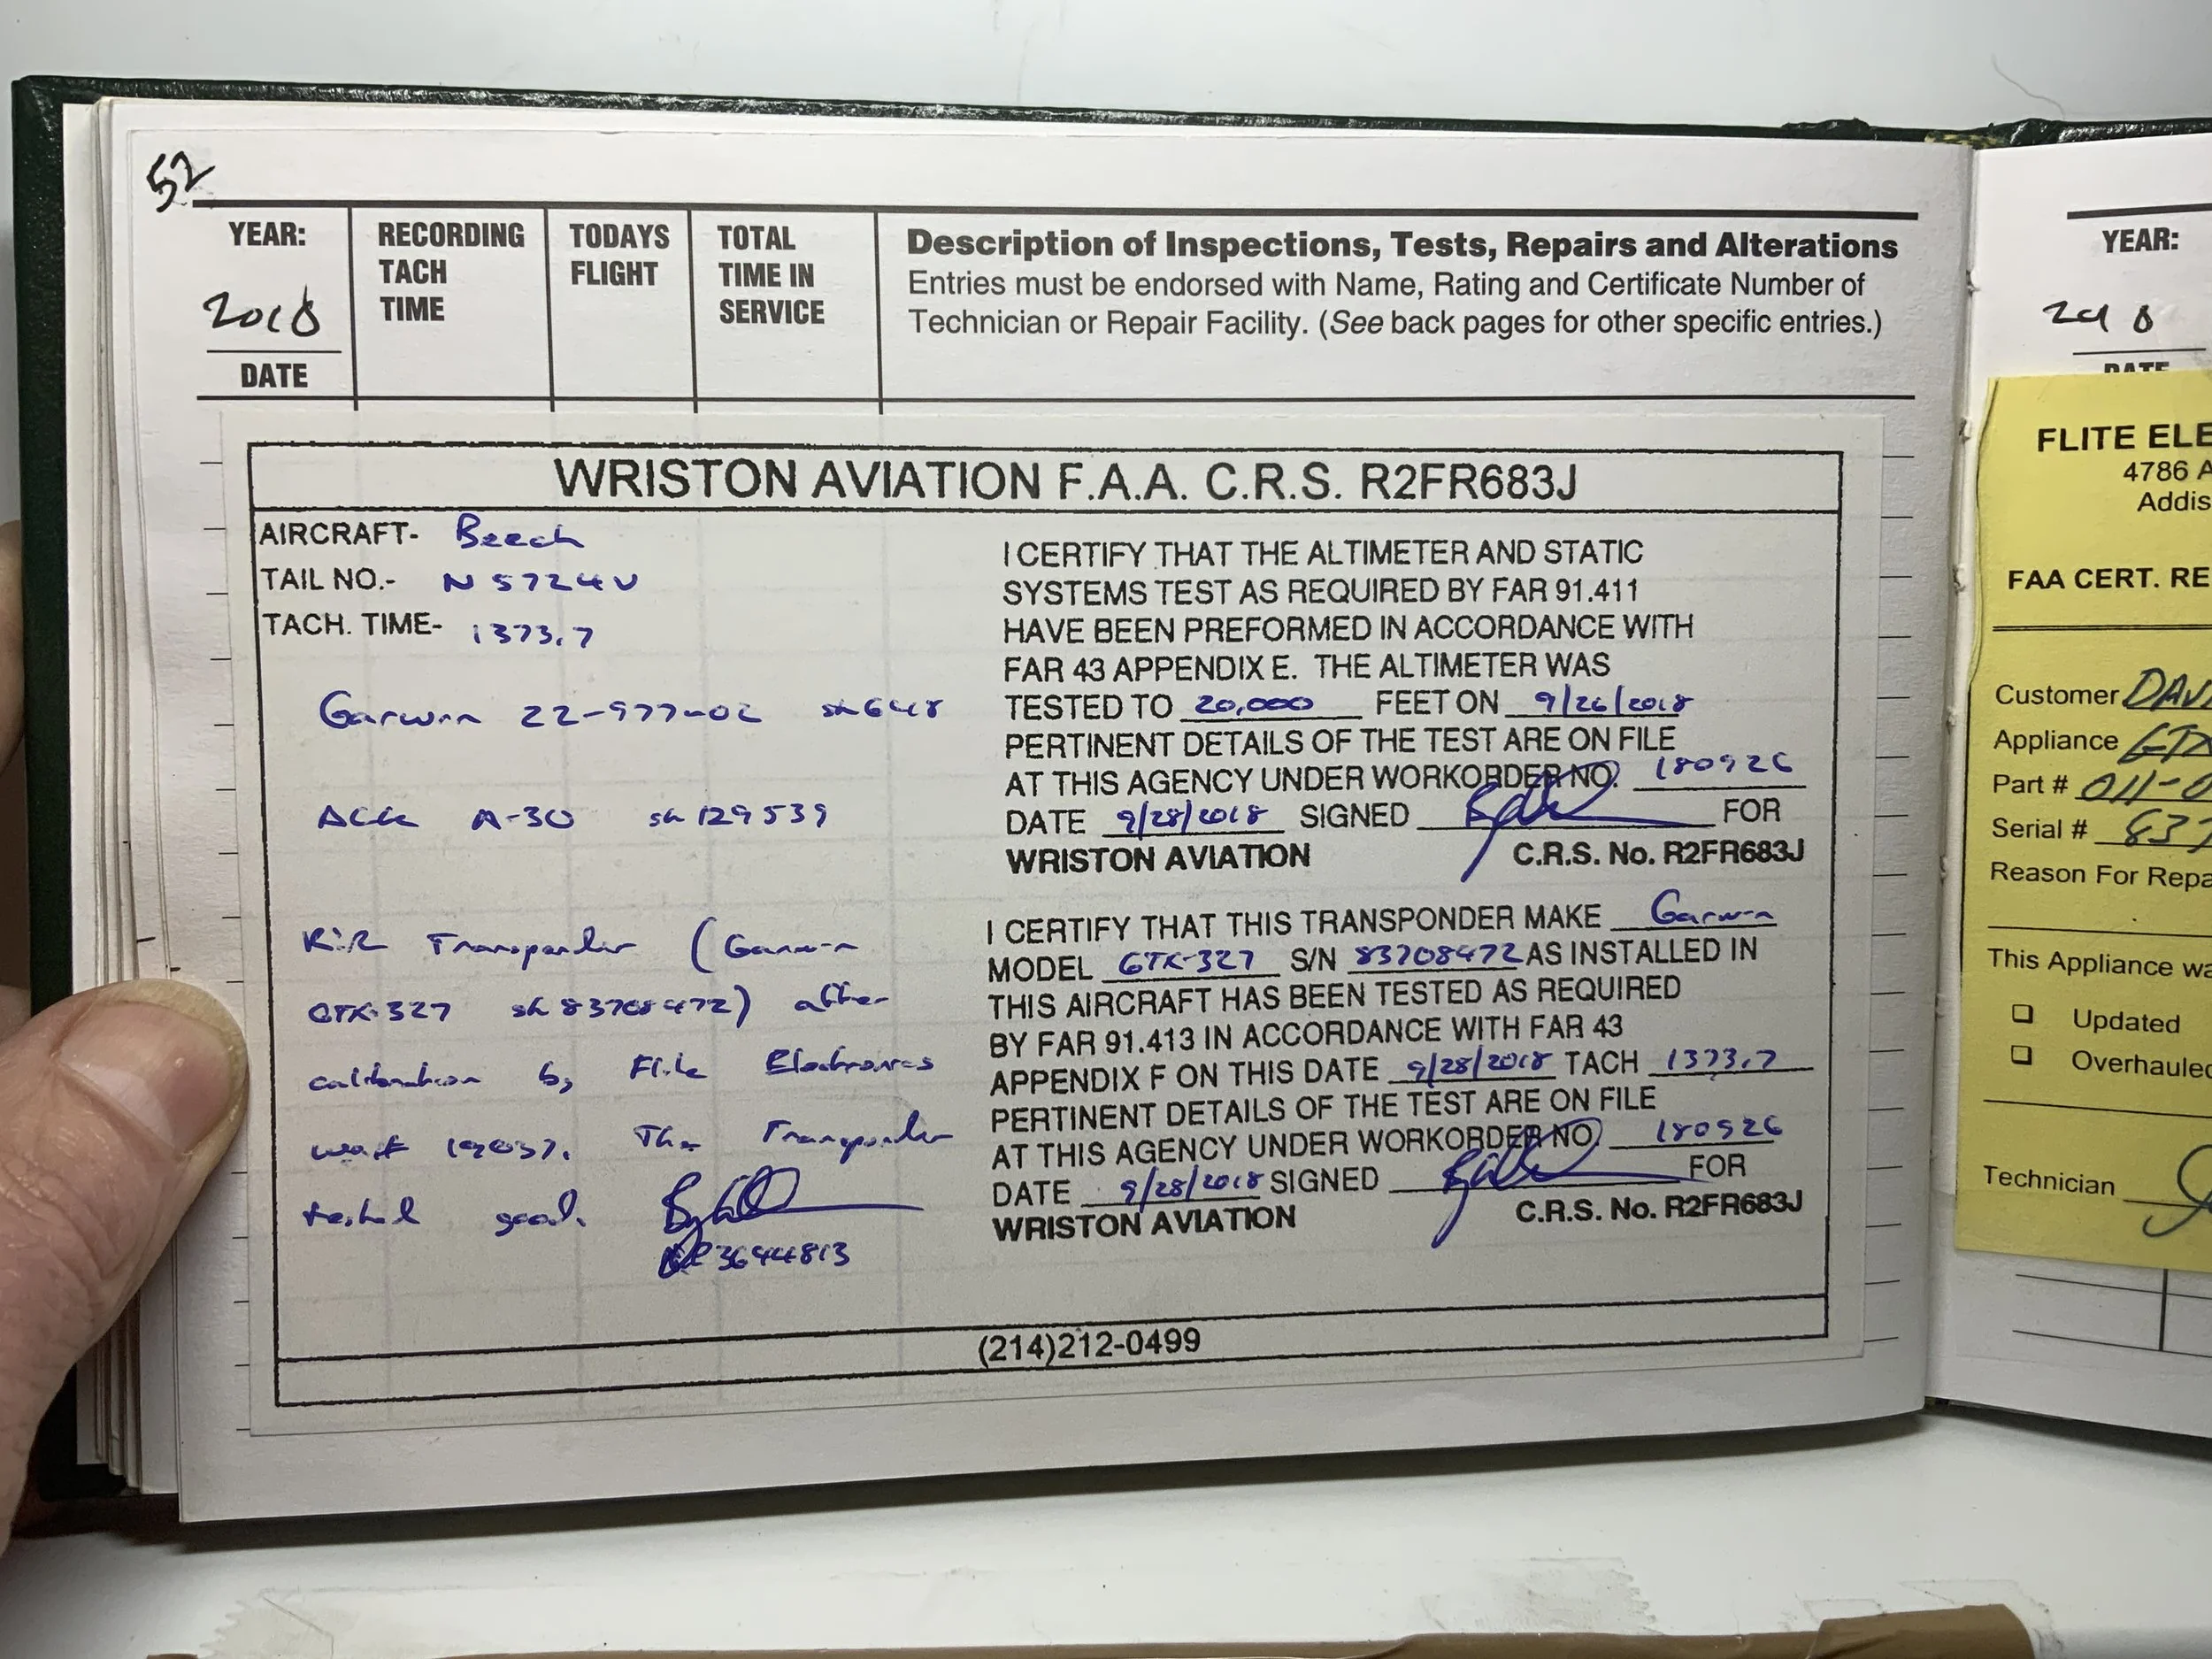 52
YEAR: RECORDING TACH TIME TODAYS FLIGHT TOTAL TIME IN SERVICE
2018
DATE
Description of Inspections, Tests, Repairs and Alterations
Entries must be endorsed with Name, Rating and Certificate Number of
Technician or Repair Facility. (See back pages for other specific entries.)
WRISTON AVIATION F.A.A. C.R.S. R2FR683J
AIRCRAFT- Beech
TAIL NO.- N5724V
TACH. TIME- 1373.7
22-977-02 sn 648
ACK A-30 sn 129539
R:R Transponder (Garmin
GTX-327 sn 83708472) after
calibration by Flite Electronics
19037. The Transponder
tested good.
3644813
I CERTIFY THAT THE ALTIMETER AND STATIC
SYSTEMS TEST AS REQUIRED BY FAR 91.411
HAVE BEEN PREFORMED IN ACCORDANCE WITH
FAR 43 APPENDIX E. THE ALTIMETER WAS
TESTED TO 20,000 FEET ON 9/26/2018
PERTINENT DETAILS OF THE TEST ARE ON FILE
AT THIS AGENCY UNDER WORKORDER NO. 180926
DATE 9/28/2018 SIGNED FOR
WRISTON AVIATION C.R.S. No. R2FR683J
I CERTIFY THAT THIS TRANSPONDER MAKE Garmin
MODEL GTX-327 S/N 83708472 AS INSTALLED IN
THIS AIRCRAFT HAS BEEN TESTED AS REQUIRED
BY FAR 91.413 IN ACCORDANCE WITH FAR 43
APPENDIX F ON THIS DATE 9/28/2018 TACH 1373.7
PERTINENT DETAILS OF THE TEST ARE ON FILE
AT THIS AGENCY UNDER WORKORDER NO. 180926
DATE 9/28/2018 SIGNED FOR
WRISTON AVIATION C.R.S. No. R2FR683J
(214)212-0499
YEAR:
2018
DATE
FLITE ELE
4786 A
Addis
FAA CERT. RE
Customer DAV
Appliance GTX
Part # 011-0
Serial # 837
Reason For Repa
This Appliance wa
Updated
Overhauled
Technician